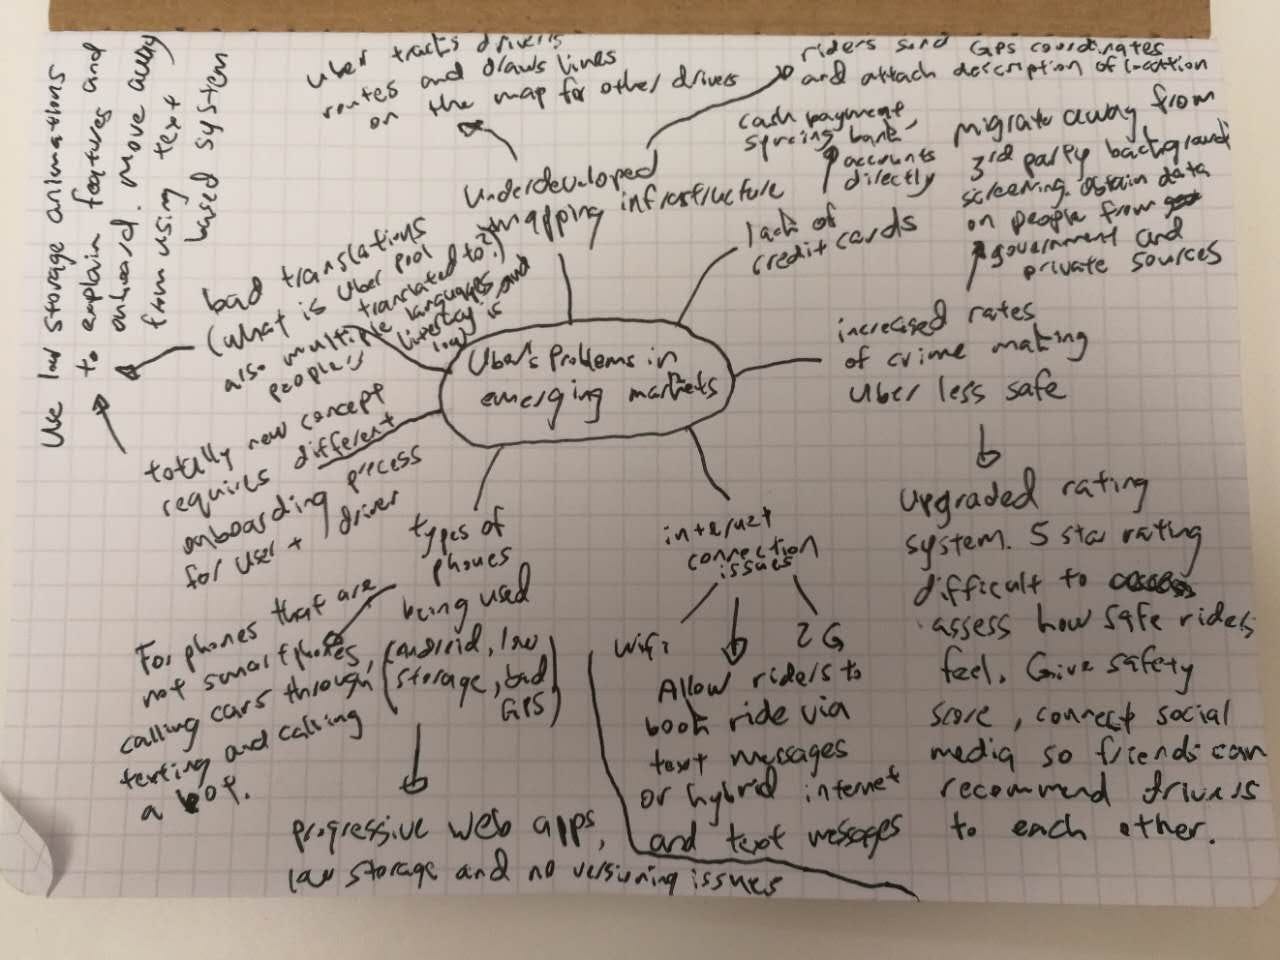 Uber's Problems in
emerging markets
Underdeveloped
mapping infrastructure
uber tracks driver's
routes and draws lines
on the map for other drives
riders send GPS coordinates
and attach description of location
lack of
credit cards
cash payment
syncing bank
accounts
directly
increased rates
of crime making
uber less safe
migrate away from
3rd party background
screening. obtain data
on people from
government and
private sources
upgraded rating
system. 5 star rating
difficult to
assess how safe riders
feel. Give safety
score, connect social
media so friends can
recommend drivers
to each other.
internet
connection
issues
wifi
2G
Allow riders to
book ride via
text messages
or hybrid internet
and text messages
types of
phones
being used
(android, low
storage, bad
GPS)
progressive web apps,
low storage and no versioning issues
For phones that are
not smartphones,
calling cars through
texting and calling
a bot.
totally new concept
requires different
onboarding process
for user + driver
bad translations
(what is Uber pool
translated to?)
also multiple languages and
people's literacy is
low
Use low storage animations
to explain features and
onboard. Move away
from using text
based system